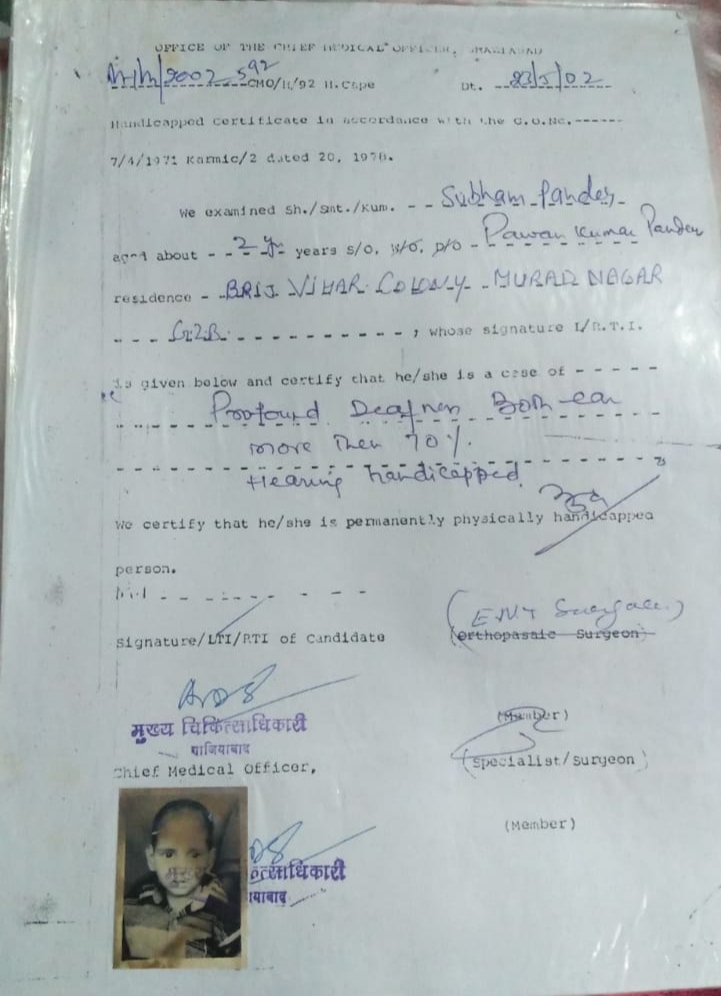 OFFICE OF THE CHIEF MEDICAL OFFICER, GHAZIABAD
2002 592 CMO/H/92 H.Cape Dt. 23/5/02
Handicapped Certificate in accordance with the G.O.No.------
7/4/1971 Karmic/2 dated 20, 1970.
We examined Sh./Smt./Kum. - - Subham Pandey
aged about - - 2 yr years S/O, W/O, D/O - Pawan Kumar Pandey
residence - BRIJ VIHAR COLONY - MURAD NAGAR
- - - GZB - - - - - - - - - - - , whose signature L/R.T.I.
is given below and certify that he/she is a case of - - - - -
" Profound Deafness Both ear
more then 70%.
Hearing handicapped
We certify that he/she is permanently physically handicapped
person.
(ENT Surgeon)
Signature/LTI/RTI of Candidate (Orthopasaic Surgeon)
मुख्य चिकित्साधिकारी (Member)
गाजियाबाद
Chief Medical Officer, (Specialist/Surgeon)
(Member)
त्साधिकारी
याबाद